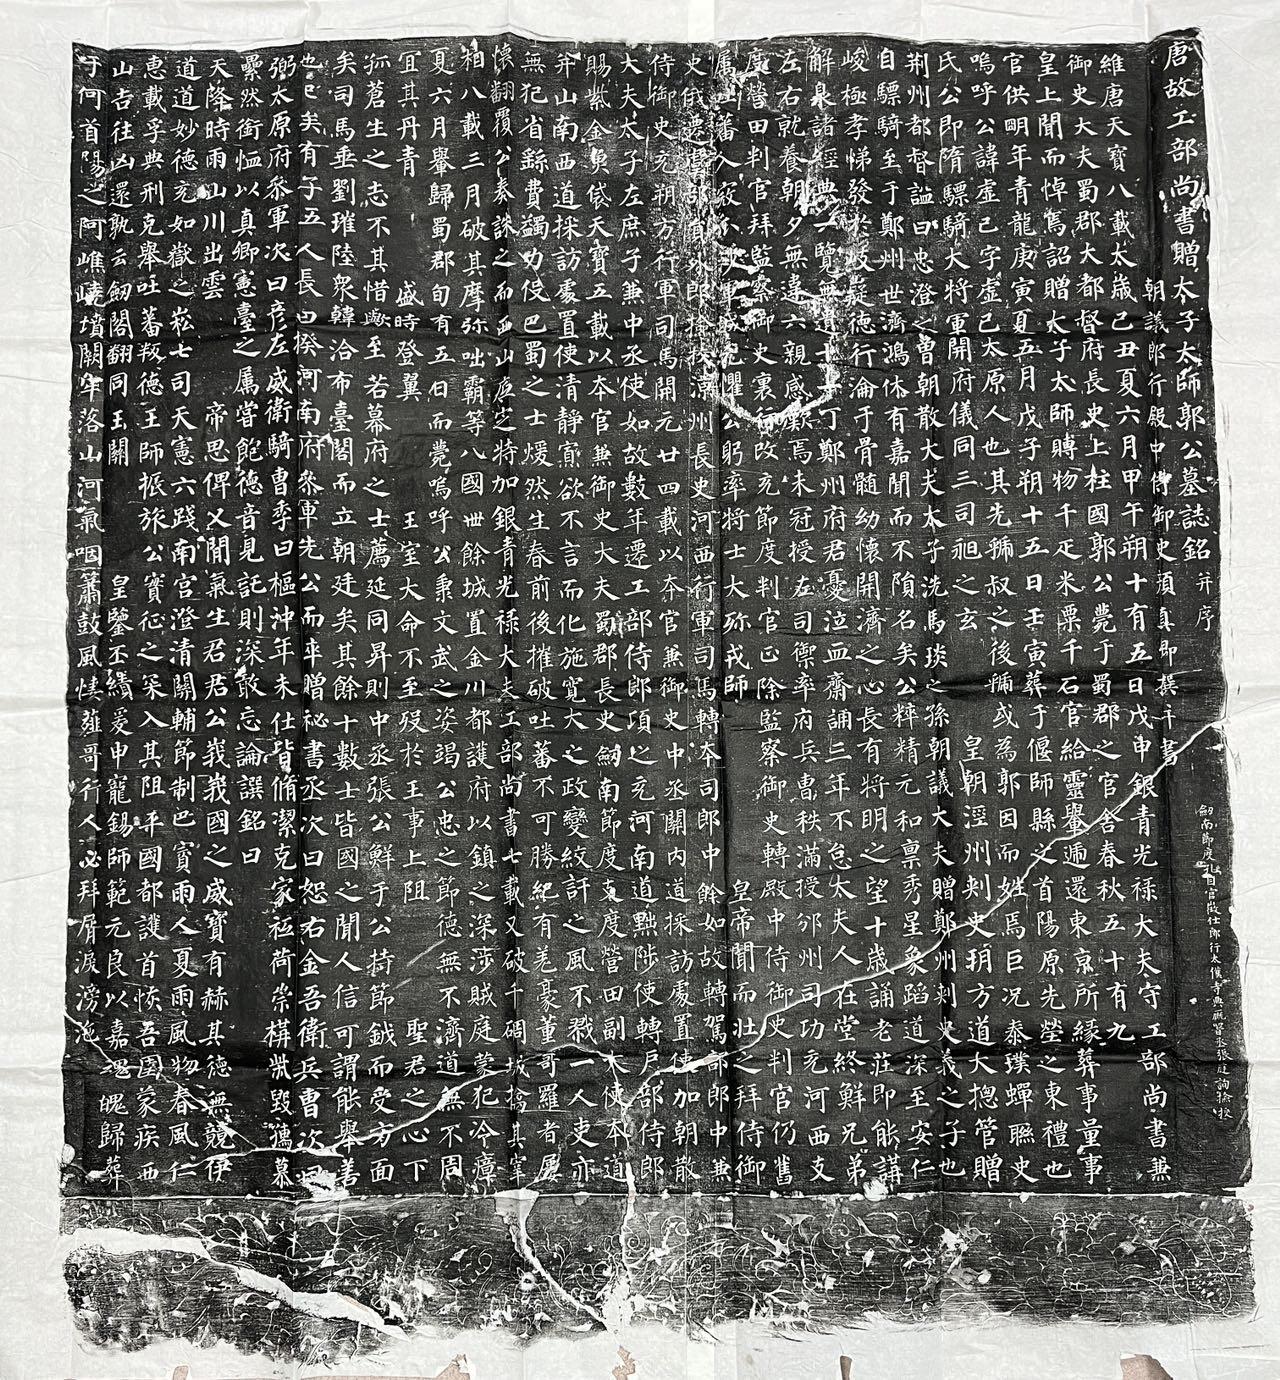 唐故工部尚書贈太子太師郭公墓誌銘并序
朝議郎行殿中侍御史顏真卿撰并書
劒南節度孔目官徵仕郎行太僕寺典廐署丞張庭詢檢校
維唐天寶八載太歲己丑夏六月甲午朔十有五日戊申銀青光禄大夫守工部尚書兼
御史大夫蜀郡大都督府長史上柱國郭公薨于蜀郡之官舍春秋五十有九
皇上聞而悼焉詔贈太子太師賻物千疋米粟千石官給靈轝遞還東京所緣葬事量事
官供明年青龍庚寅夏五月戊子朔十五日壬寅葬于偃師縣之首陽原先塋之東禮也
嗚呼公諱虛己字虛己太原人也其先虢叔之後虢或為郭因而姓焉巨況泰璞蟬聯史
氏公即隋驃騎大將軍開府儀同三司昶之玄 皇朝涇州刺史朔方道大揔管贈
荆州都督謚曰忠澄之曽朝散大夫太子洗馬琰之孫朝議大夫贈鄭州刺史義之子也
自驃騎至于鄭州世濟鴻休有嘉聞而不隕名矣公粹精元和禀秀星象蹈道深至安仁
峻極孝悌發於岐嶷德行淪于骨髓幼懷開濟之心長有將明之望十歲誦老莊即能講
解泉諸經典一覽無遺十一丁鄭州府君憂泣血齋誦三年不怠太夫人在堂終鮮兄弟
左右就養朝夕無違六親感歎焉未冠授左司禦率府兵曹秩滿授邠州司功充河西支
度營田判官拜監察御史裏行改充節度判官正除監察御史轉殿中侍御史判官仍舊
屬山蕃入寇 軍城兇懼公躬率將士大殄戎師 皇帝聞而壯之拜侍御
史俄遷虞部員外郎檢校涼州長史河西行軍司馬轉本司郎中餘如故轉駕部郎中兼
侍御史充朔方行軍司馬開元廿四載以本官兼御史中丞關內道採訪處置使加朝散
大夫太子左庶子兼中丞使如故數年遷工部侍郎頃之充河南道黜陟使轉户部侍郎
賜紫金魚袋天寶五載以本官兼御史大夫蜀郡長史劒南節度支度營田副大使本道
并山南西道採訪處置使清靜寡欲不言而化施寬大之政變絞訐之風不戮一人吏亦
無犯省繇費蠲功役巴蜀之士煖然生春前後摧破吐蕃不可勝紀有羌豪董哥羅者屢
懷翻覆公奏誅之而西山底定特加銀青光禄大夫工部尚書七載又破千碉城擒其宰
相八載三月破其摩弥咄霸等八國卌餘城置金川都護府以鎮之深涉賊庭蒙犯冷瘴
夏六月轝歸蜀郡旬有五日而薨嗚呼公秉文武之姿竭公忠之節德無不濟道無不周
宜其丹青 盛時登翼 王室大命不至歿於王事上阻 聖君之心下
孤蒼生之志不其惜歟至若幕府之士薦延同昇則中丞張公鮮于公持節鉞而受方面
矣司馬垂劉璀陸衆韓洽布臺閣而立朝廷矣其餘十數士皆國之聞人信可謂能舉善
也已矣有子五人長曰揆河南府參軍先公而卒贈秘書丞次曰恕右金吾衛兵曹次曰
弼太原府參軍次曰彦左威衛騎曹季曰樞沖年未仕皆脩潔克家祗荷崇構煢毀擗慕
纍然銜恤以真卿憲臺之属嘗飽德音見託則深敢忘論譔銘曰
天降時雨山川出雲 帝思俾乂閒氣生君君公峩峩國之威寶有赫其德無競伊
道道妙德充如嶽之崧七司天憲六踐南宮澄清關輔節制巴賨雨人夏雨風物春風仁
惠載孚典刑克舉吐蕃叛德王師振旅公實征之罙入其阻并國都護首恢吾圉蒙疾西
山吉往凶還孰云劒閣翻同玉關 皇鑒丕績爰申寵錫師範元良以嘉魂魄歸葬
于何首陽之阿嶕嶢墳闕牢落山河氣咽簫鼓風悽薤哥行人必拜屑淚滂沱